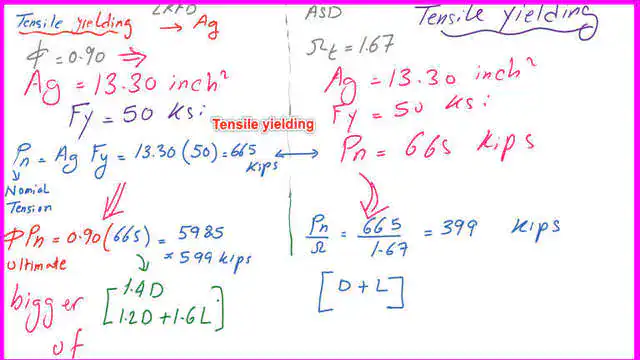 Tensile yielding
LRFD
→ Ag
ϕ = 0.90 ⇒
Ag = 13.30 inch²
Fy = 50 ksi
Pn = Ag Fy = 13.30 (50) = 665 Kips
Nomial Tension
ϕPn = 0.90 (665) = 5985
= 599 kips
ultimate
bigger of
1.4D
1.2D + 1.6L
Tensile yielding
ASD
Tensile yielding
Ωt = 1.67
Ag = 13.30 inch²
Fy = 50 ksi
Pn = 665 kips
Pn/Ω = 665/1.67 = 399 kips
[D + L]